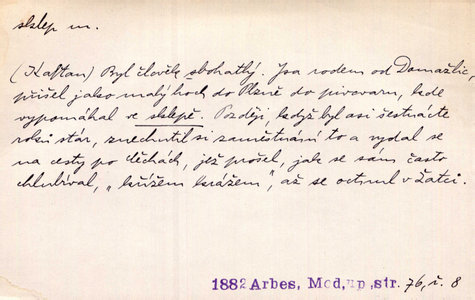 sklep m.
(Kaftan) Byl člověk sbohatlý. Jsa rodem od Domažlic,
přišel jako malý hoch do Plzně do pivovaru, kde
vypomáhal ve sklepě. Později, když byl asi šestnácte
roků stár, znechutil si zaměstnání to a vydal se
na cesty po Čechách, jež prošel, jak se sám často
chlubíval, „křížem krážem", až se octnul v Žatci.
1882 Arbes, Mod. up., str. 76, ř. 8